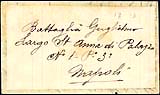 Battaglia Guglielmo
Largo St Anna di Palazzo
N° 1- N° 3°
Napoli